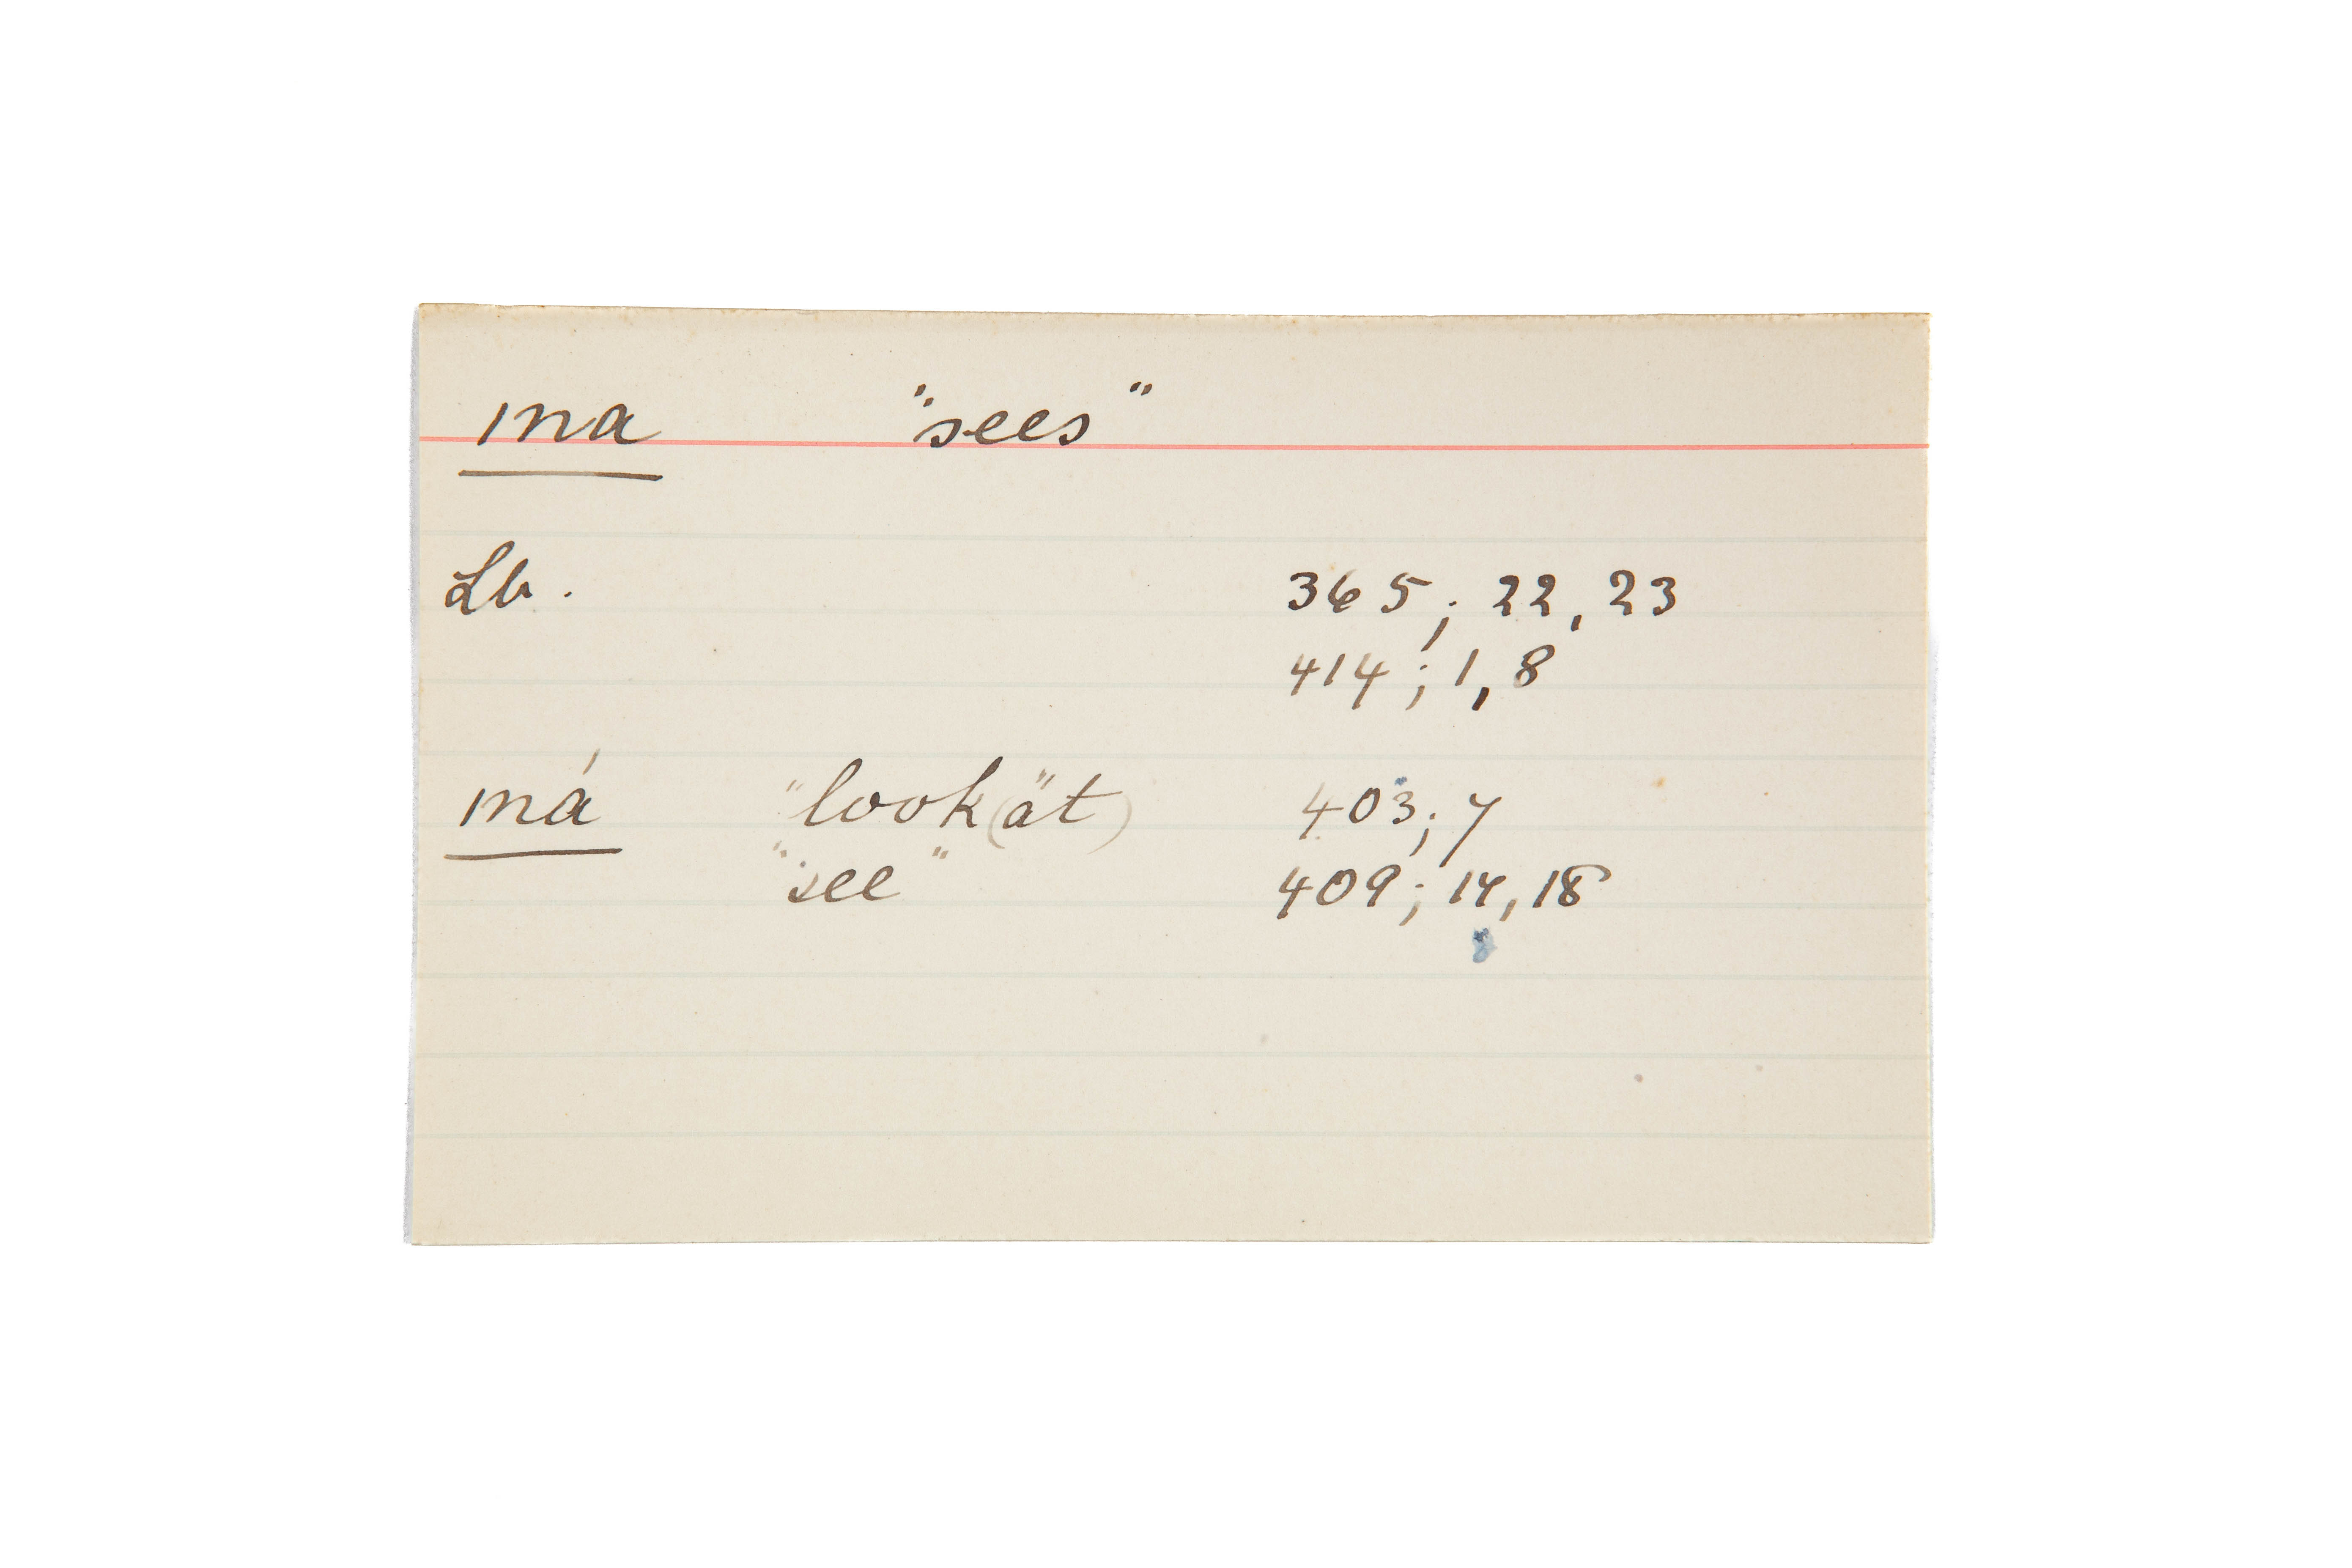 |na "sees"
Lb. 365; 22, 23
414; 1, 8
|ná "look"(at) 403; 7
"see" 409; 18